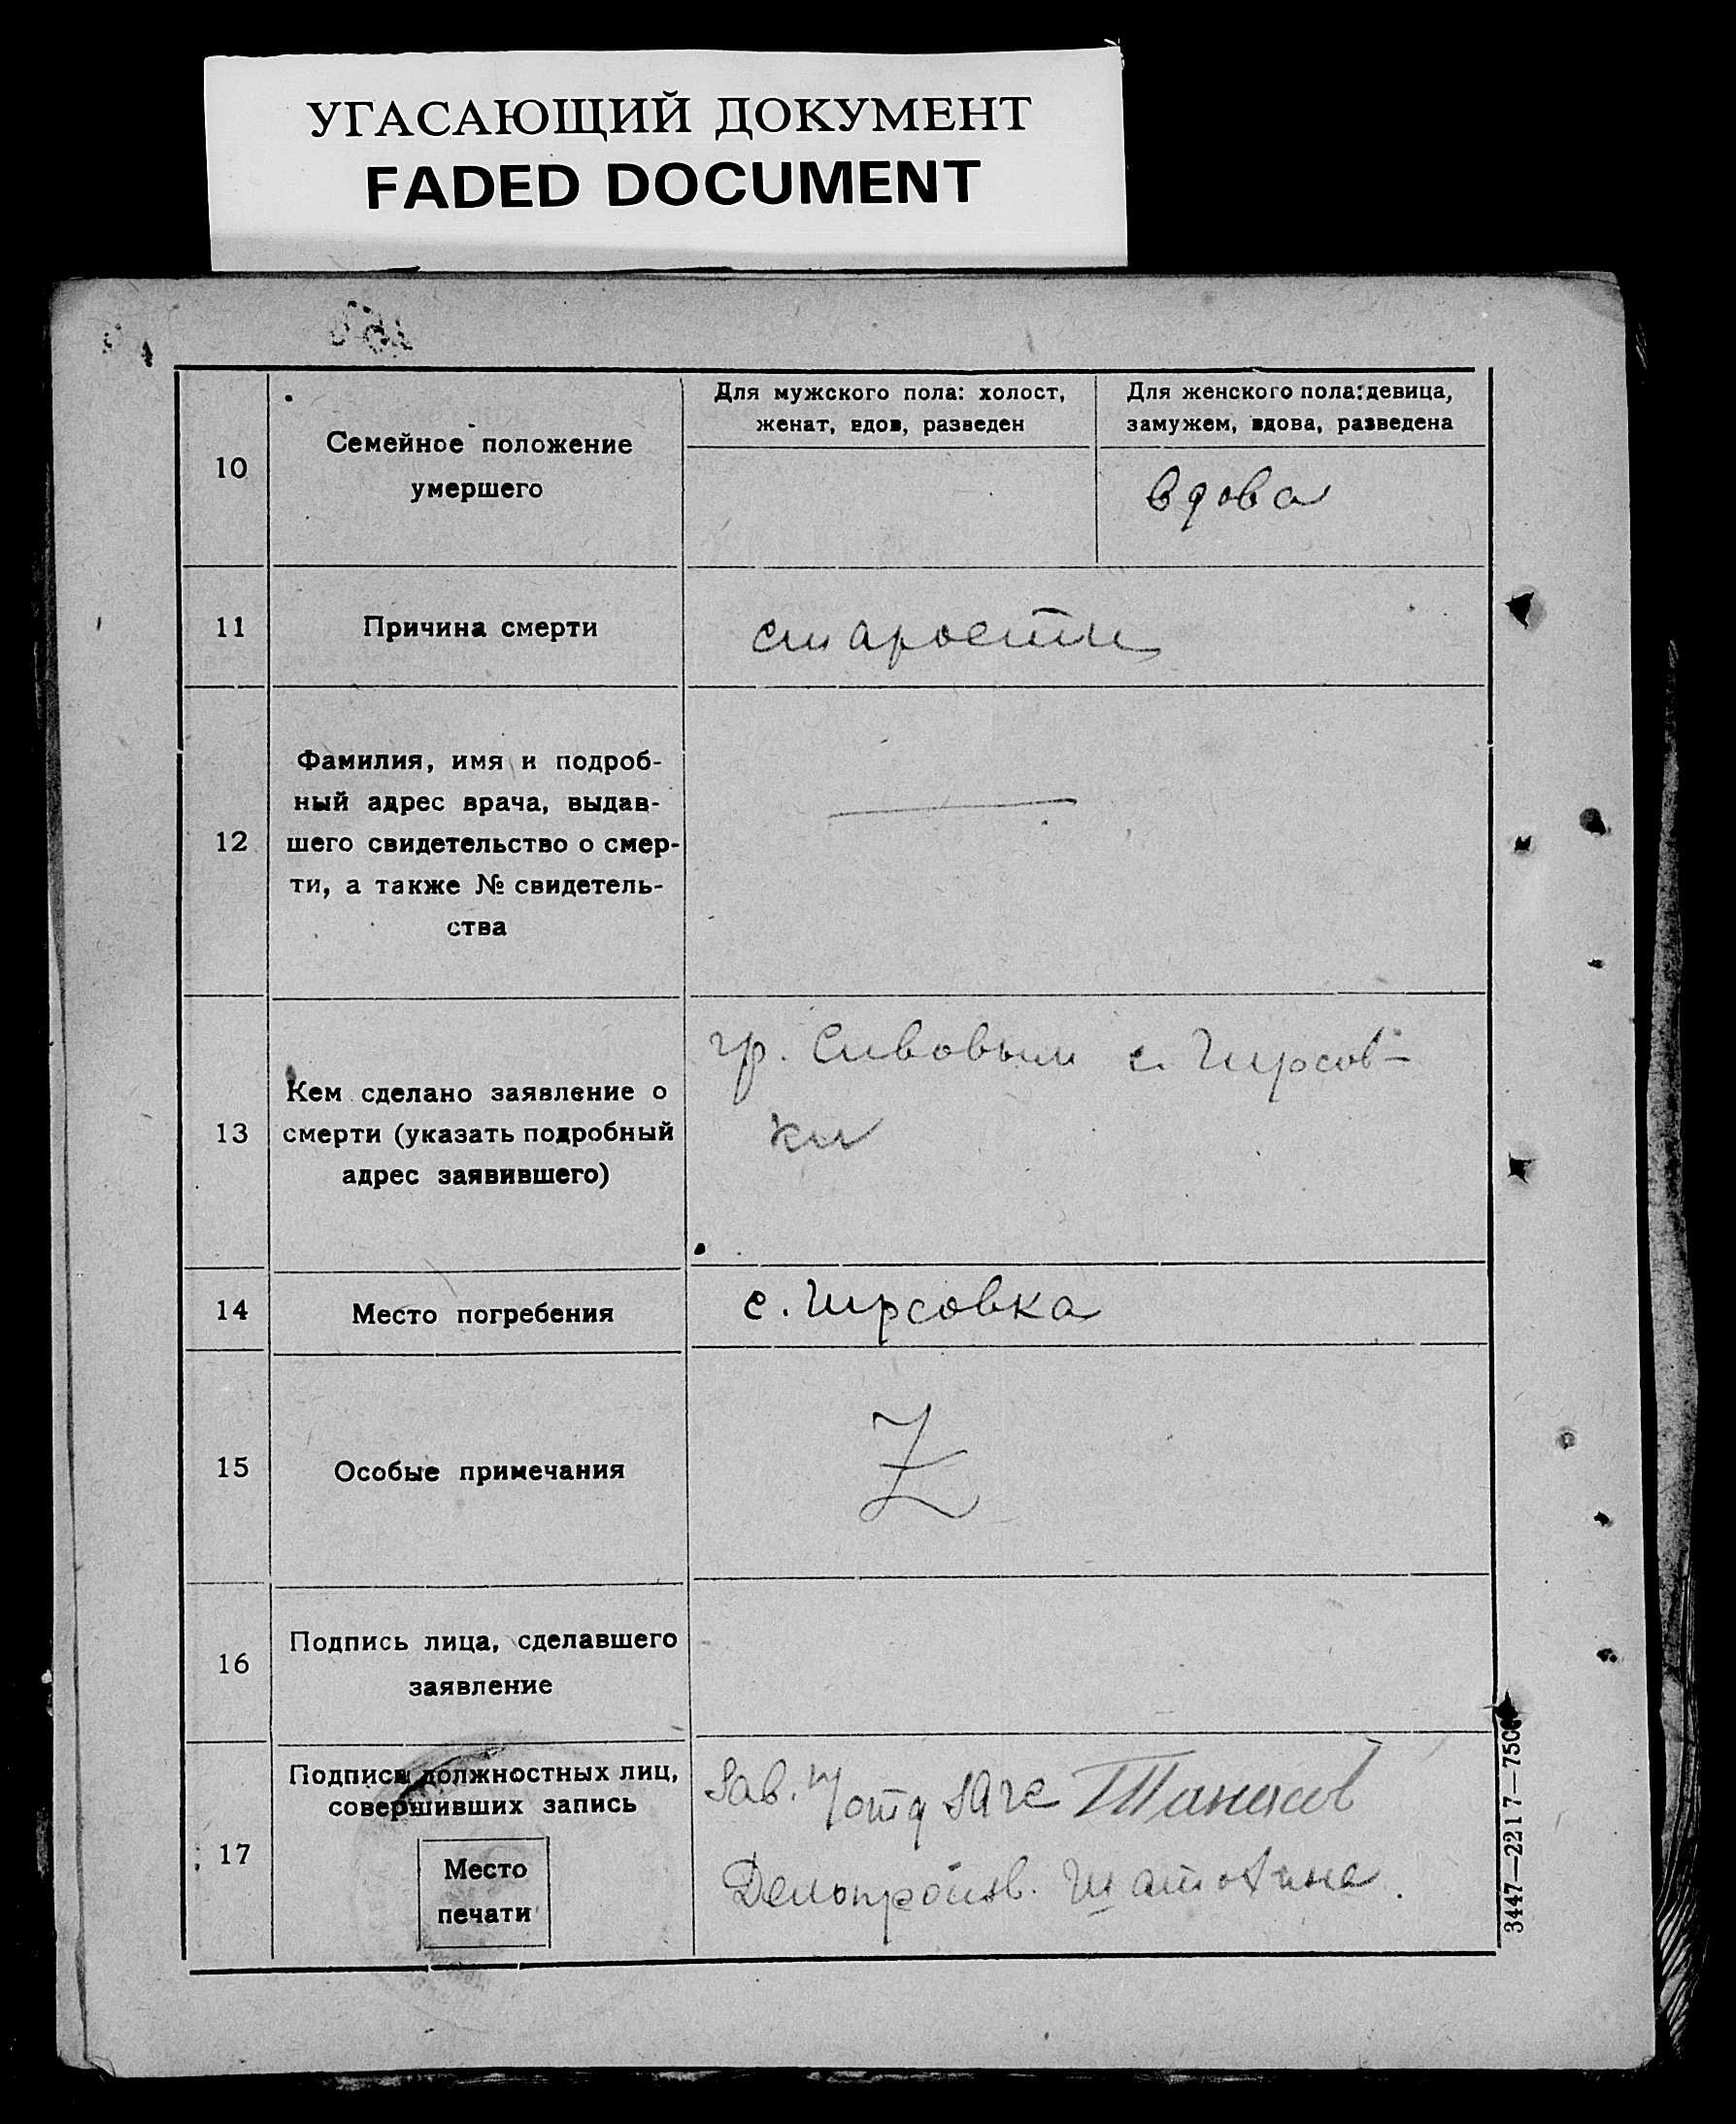 УГАСАЮЩИЙ ДОКУМЕНТ
FADED DOCUMENT
10
Семейное положение
умершего
Для мужского пола: холост,
женат, вдов, разведен
Для женского пола: девица,
замужем, вдова, разведена
вдова
11
Причина смерти
старости
12
Фамилия, имя и подроб-
ный адрес врача, выдав-
шего свидетельство о смер-
ти, а также № свидетель-
ства
13
Кем сделано заявление о
смерти (указать подробный
адрес заявившего)
гр. Сивовым с. Чирсов-
ки
14
Место погребения
с. Чирсовка
15
Особые примечания
Z
16
Подпись лица, сделавшего
заявление
17
Подписи должностных лиц,
совершивших запись
Место
печати
Зав. отд загс Танасов
Делопроизв.
3447—2217—750